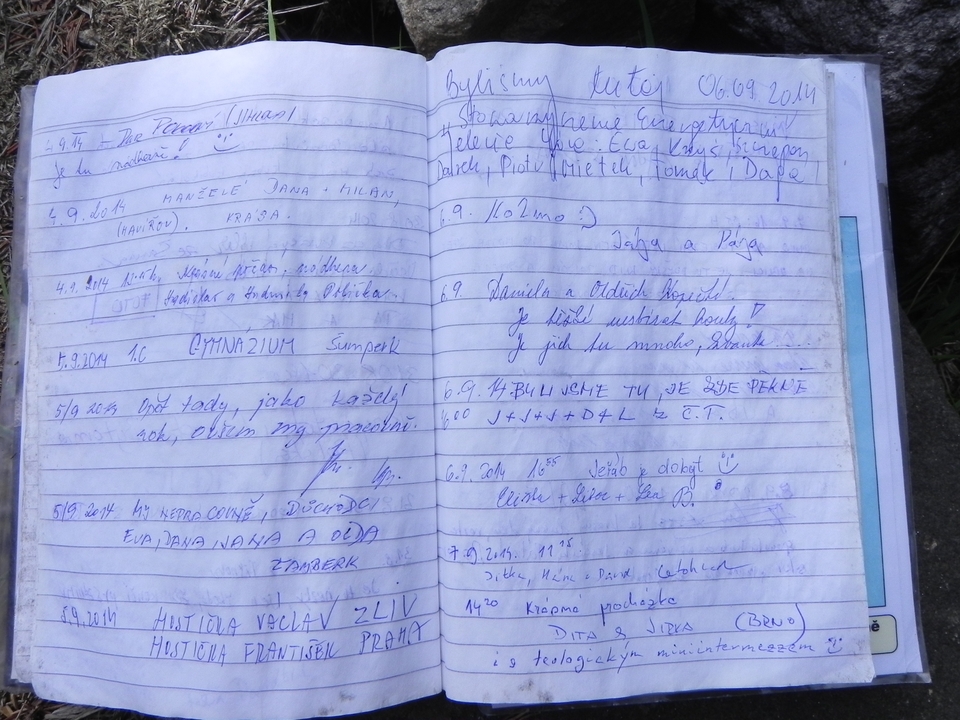 4.9.14 - Dva (JIHLAVA)
Je tu nádherně!
4.9.2014 MANŽELÉ DANA + MILAN,
(HAVÍŘOV). KRÁSA.
4.9.2014 Krásné počasí, nádhera.
a
5.9.2014 1.C GYMNAZIUM Šumperk
5/9 2014 Opět tady, jako každý
rok, ovšem my pracovně.
5/9 2014 MY NEPRACOVNĚ, DŮCHODCI
EVA, DANA, JANA A OLDA
ŽAMBERK
5.9.2014 HOSTIČKA VACLAV ZLIV
HOSTIČKA FRANTIŠEK PRAHA
Byliśmy tutaj 06.09.2014
Stowarzyszenie Energetyczne
Jelenie Góra: Ewa, Krzyś, Szczepan,
Darek, Piotr, Mietek, Tomek i Daga
6.9. Kožmo :)
Jája a Pája
6.9 Daniela a Oldřich
Je těžké nesbírat houby!
Je jich tu mnoho,
6.9.14 BYLI JSME TU, JE ZDE PĚKNĚ
J+J+J+D+L z Č.T.
6.9.2014 16⁵⁵ Jeřáb je dobyt
+ Libor + Lea B.
7.9.2014. 11¹⁵
Jitka, Hana a David Letohrad
14²⁰ Krásná procházka
DITA & JIRKA (BRNO)
i s teologickým miniintermezzem
ě